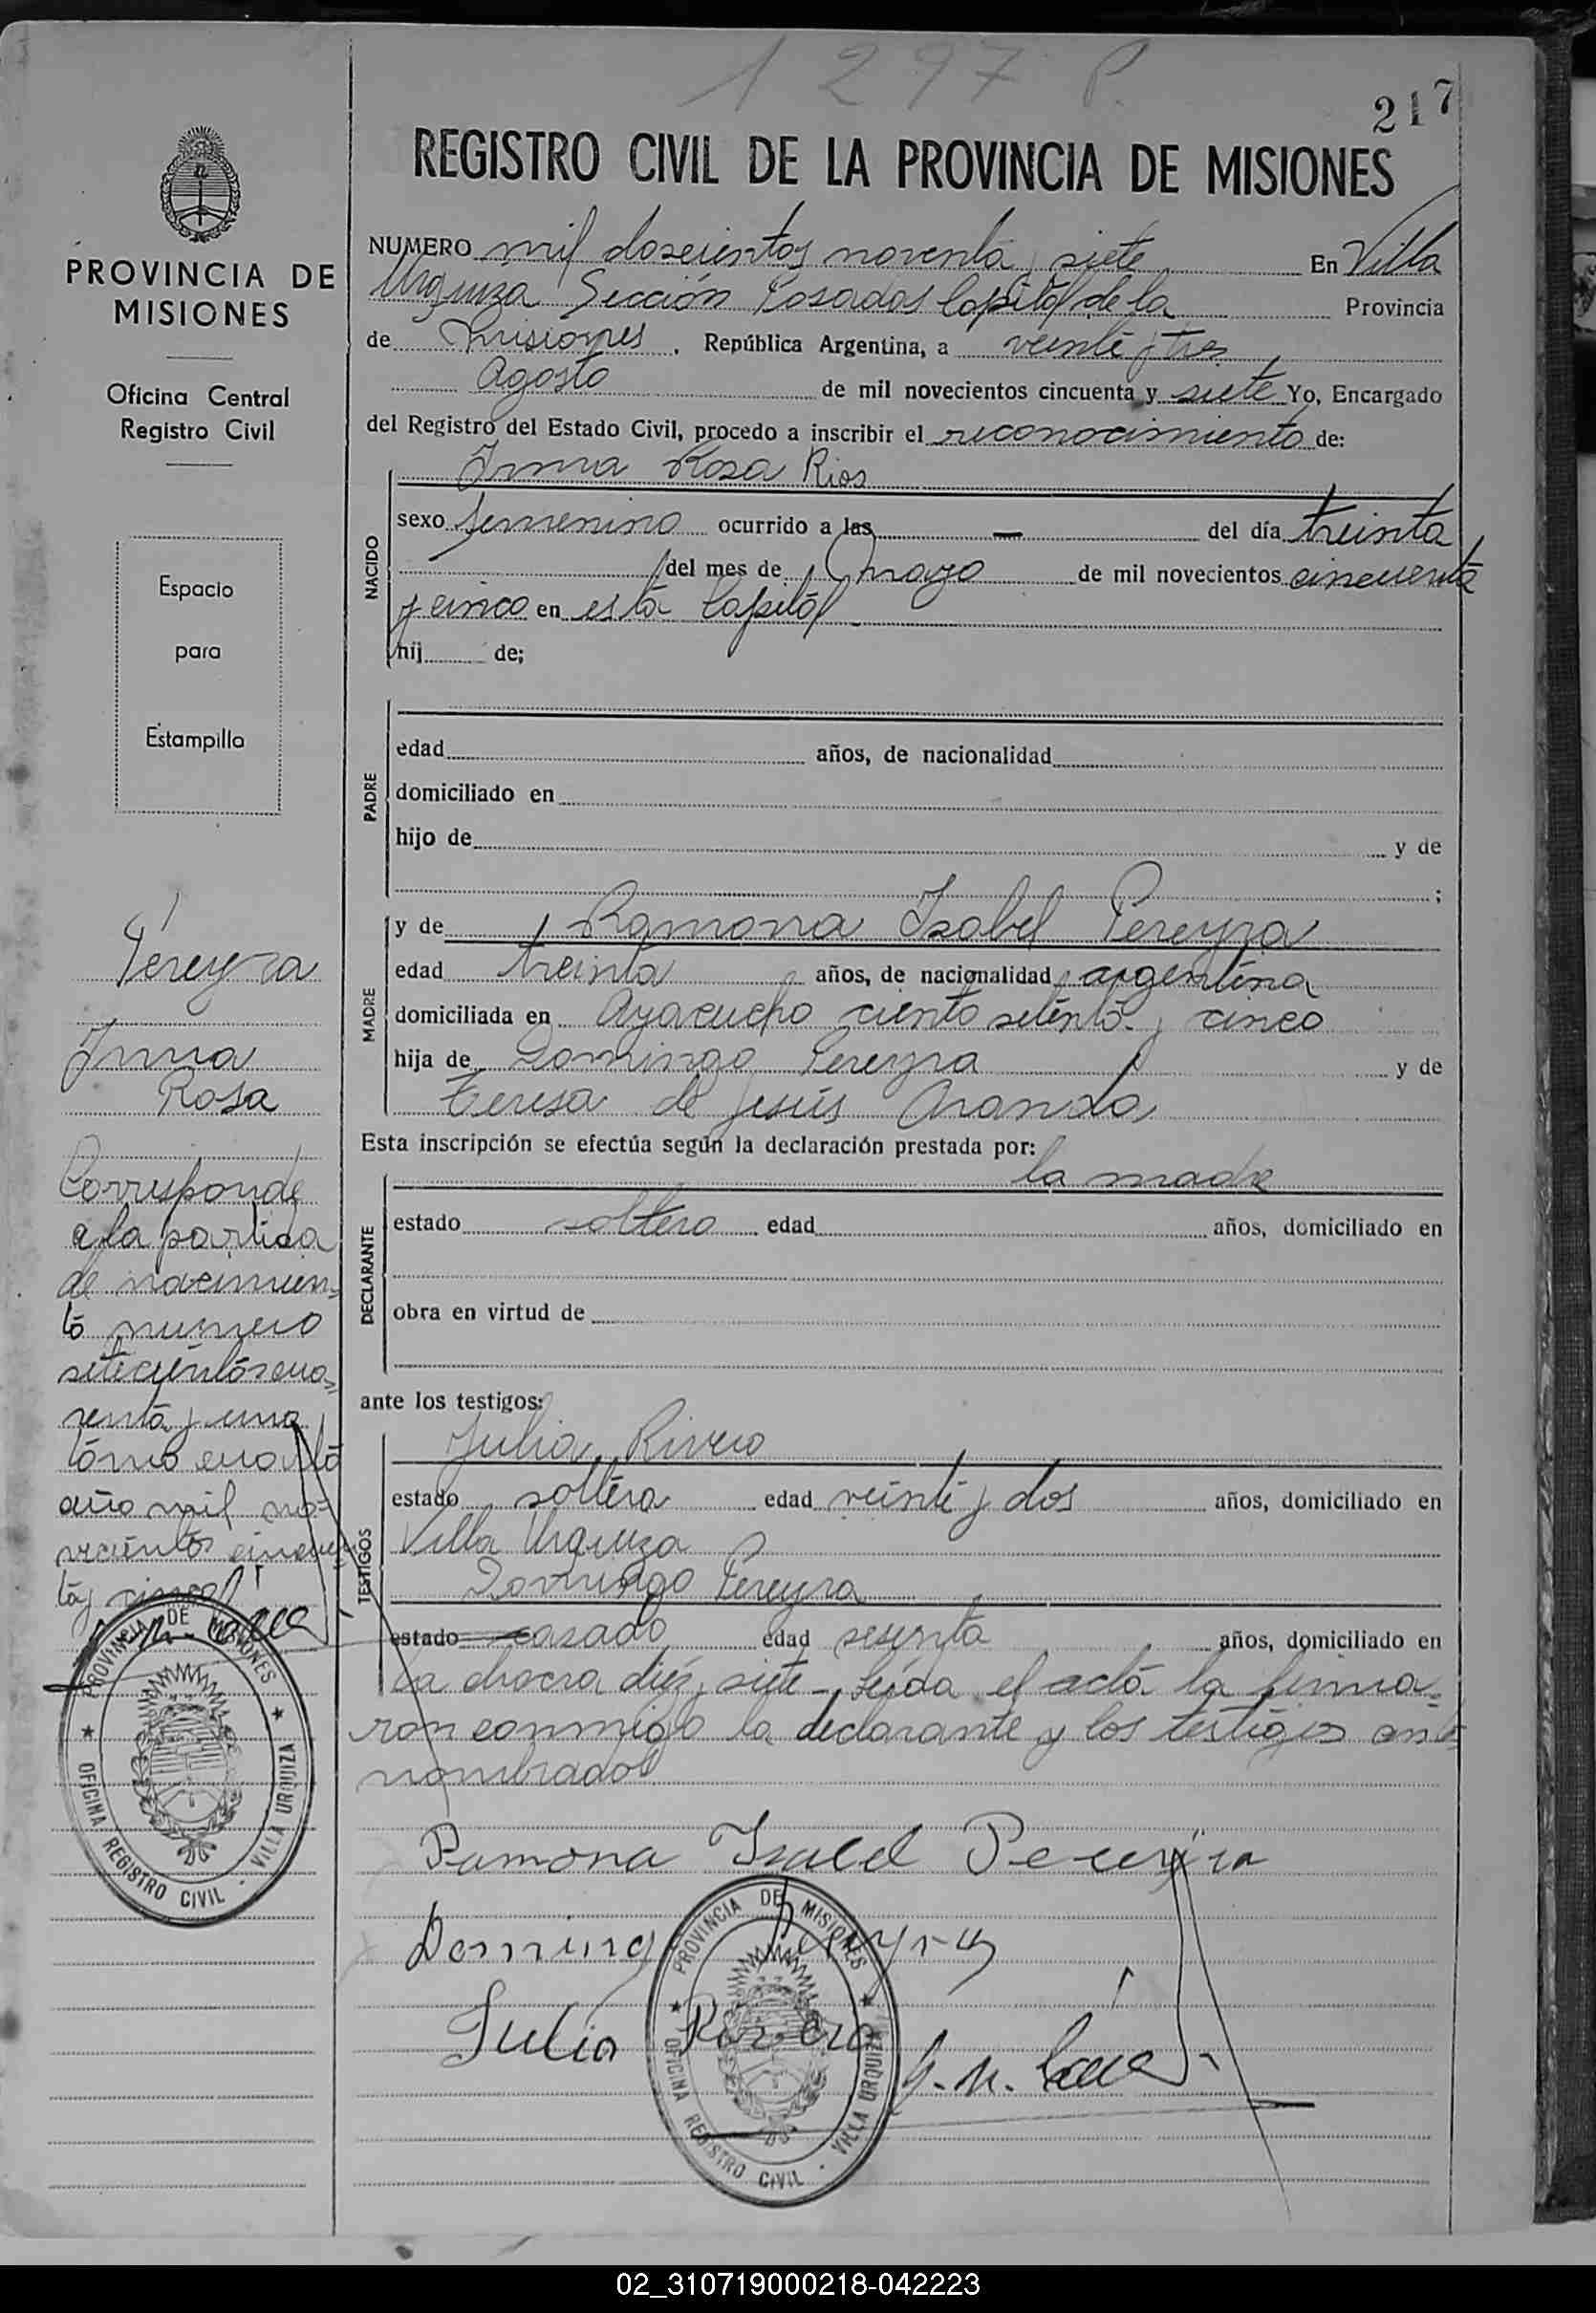 1297 P.
217
REGISTRO CIVIL DE LA PROVINCIA DE MISIONES
NUMERO mil doscientos noventa y siete En Villa
Urquiza Sección Posadas Capital de la Provincia
de Misiones, República Argentina, a veinte y tres
Agosto de mil novecientos cincuenta y siete Yo, Encargado
del Registro del Estado Civil, procedo a inscribir el reconocimiento de:
Irma Rosa Rios
NACIDO
sexo femenino ocurrido a las — del día treinta
del mes de Mayo de mil novecientos cincuenta
y cinco en esta Capital
hij de;
PADRE
edad años, de nacionalidad
domiciliado en
hijo de y de
;
MADRE
y de Ramona Isabel Pereyra
edad treinta años, de nacionalidad argentina
domiciliada en Ayacucho ciento setenta y cinco
hija de Domingo Pereyra y de
Teresa de Jesús Aranda
Esta inscripción se efectúa según la declaración prestada por:
la madre
DECLARANTE
estado soltera edad años, domiciliado en
obra en virtud de
ante los testigos:
TESTIGOS
Julia Rivero
estado soltera edad veinte y dos años, domiciliado en
Villa Urquiza
Domingo Pereyra
estado casado edad sesenta años, domiciliado en
la chacra diez y siete - Leída el acta la firma=
ron conmigo la declarante y los testigos ante
nombrados
Ramona Isabel Pereyra
Domingo Pereyra
Julia Rivero
PROVINCIA DE MISIONES
OFICINA REGISTRO CIVIL - VILLA URQUIZA
PROVINCIA DE
MISIONES
Oficina Central
Registro Civil
Espacio
para
Estampilla
Pereyra
Irma
Rosa
Corresponde
a la partida
de nacimien=
to numero
setecientos cua=
renta y uno
tomo cuarto
año mil no=
vecientos cincuen
ta y cinco
PROVINCIA DE MISIONES
OFICINA REGISTRO CIVIL - VILLA URQUIZA
02_310719000218-042223